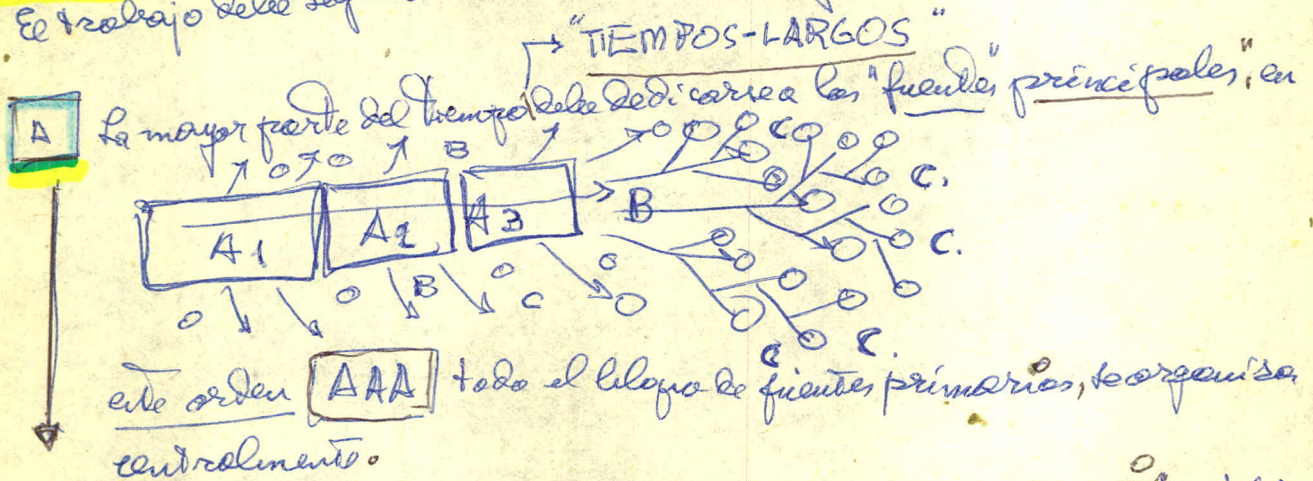 El trabajo debe
"TIEMPOS-LARGOS"
A La mayor parte del tiempo debe dedicarse a las "fuentes" principales", en
B C C.
A1 A2 A3 B
C.
B C
C C.
este orden AAA todo el bloque de fuentes primarias, se organiza
centralmente.